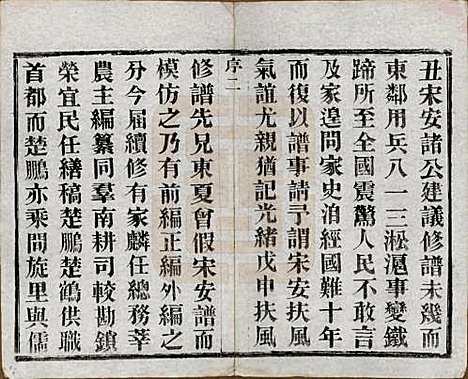 丑宋安諸公建議修譜未幾而
東鄰用兵八一三淞滬事變鐵
蹄所至全國震驚人民不敢言
及家遑問家史洎經國難十年
而復以譜事請予謂宋安扶風
氣誼尤親猶記光緒戊申扶風
序二
修譜先兄東夏曾假宋安譜而
模仿之乃有前編正編外編之
分今屆續修有家麟任總務莘
農主編纂同羣南耕司較勘鎮
榮宜民任繕稿楚鵬楚鶴供職
首都而楚鵬亦乘間旋里與儒